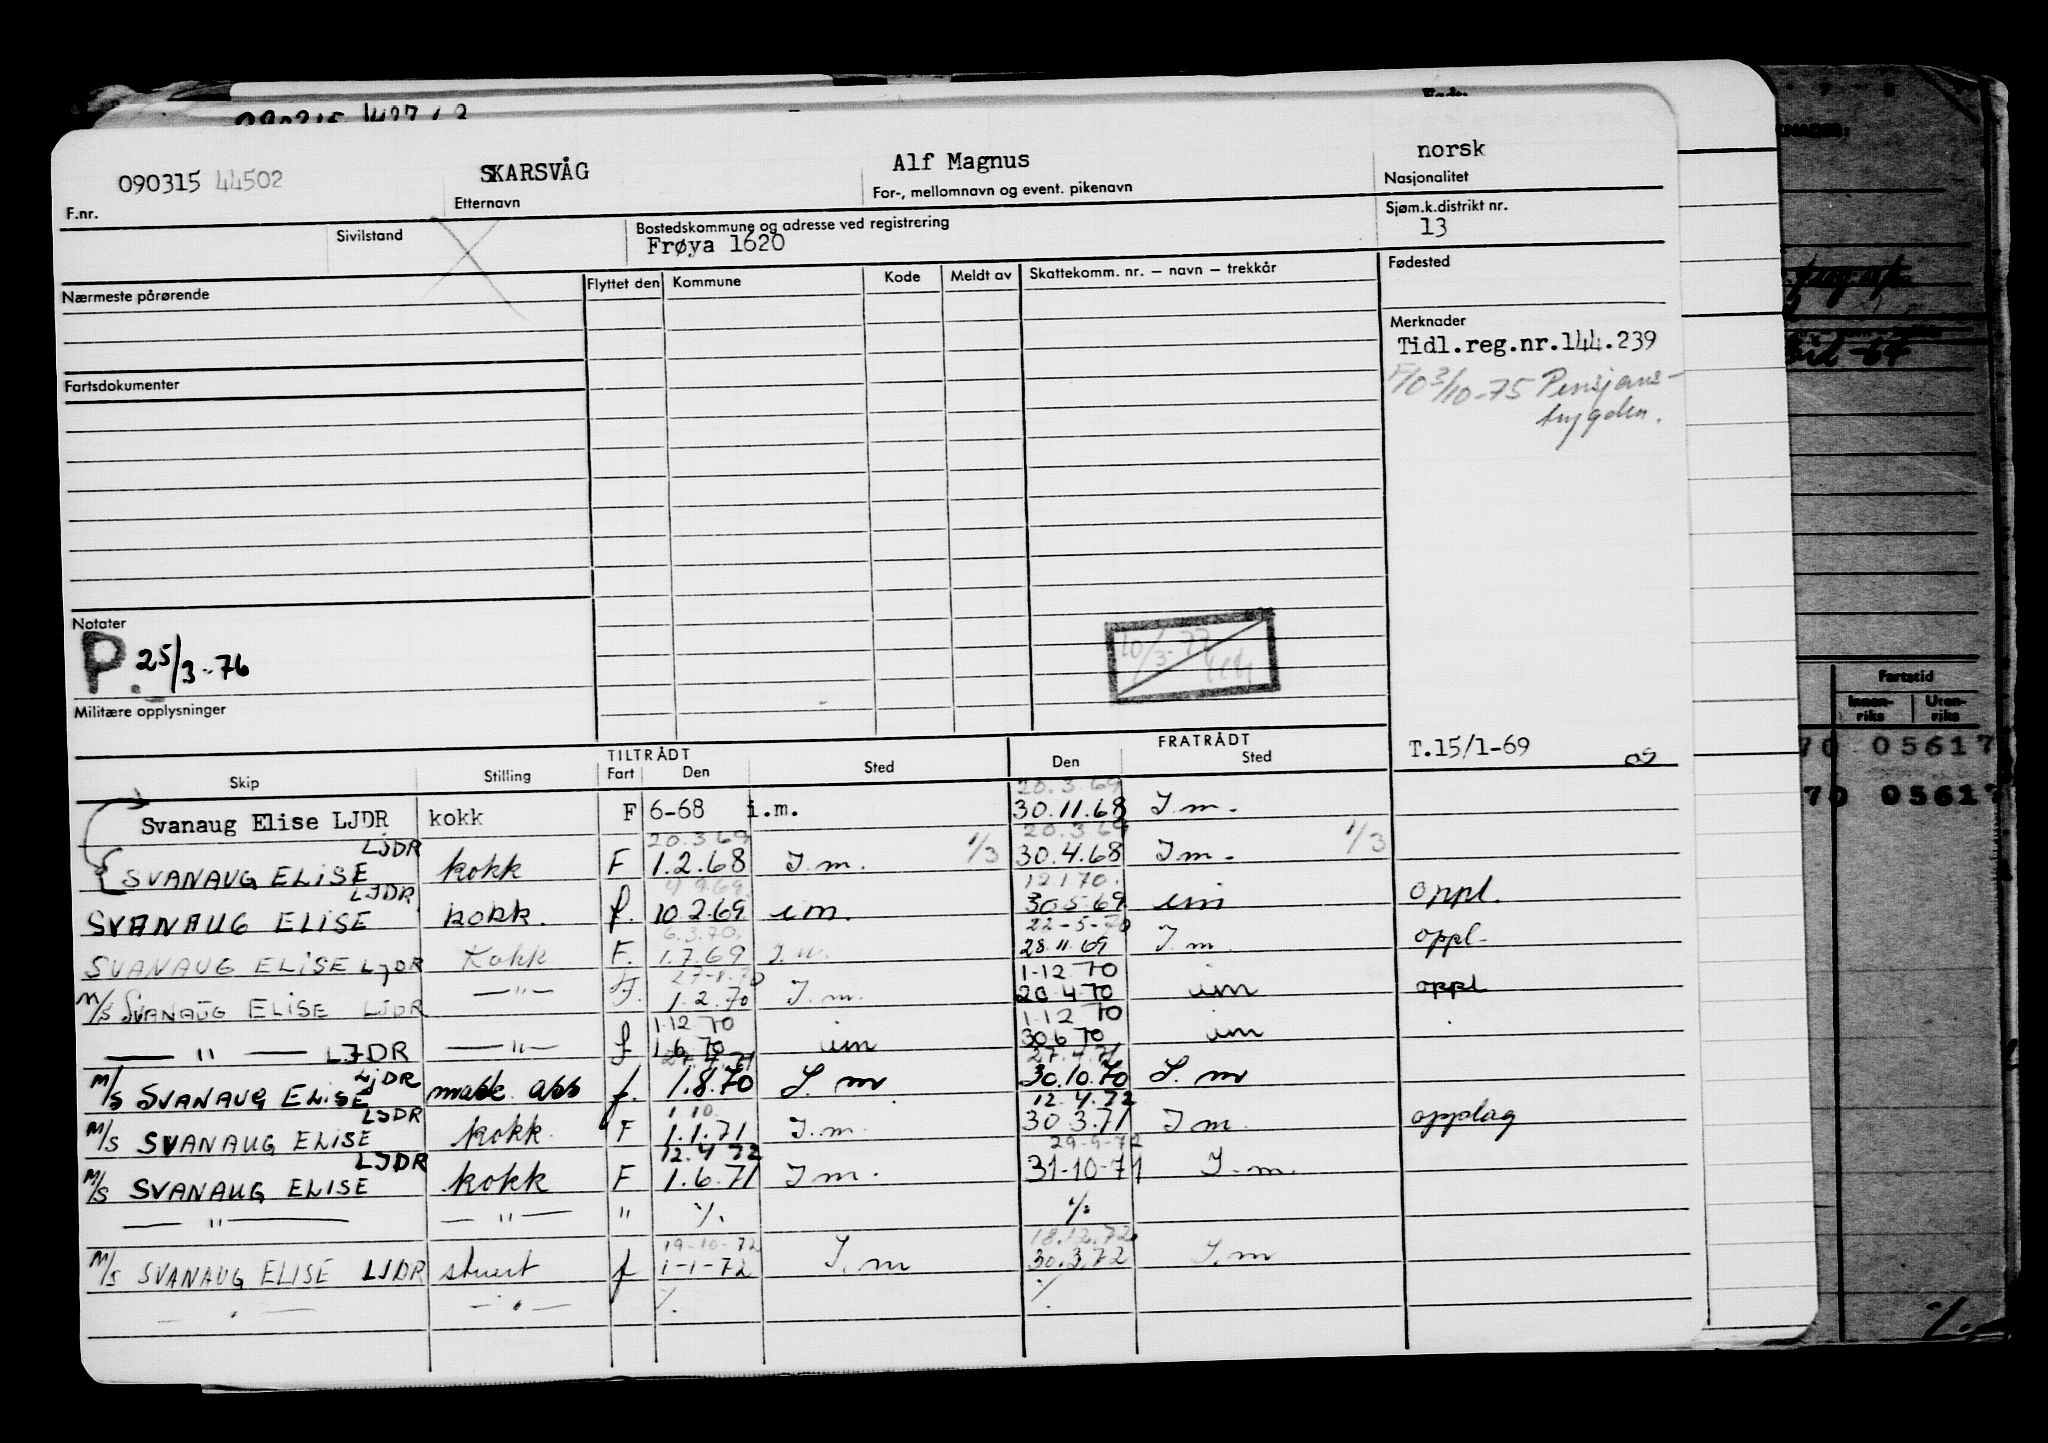 090315 44502 SKARSVÅG Alf Magnus norsk
F.nr. Etternavn For-, mellomnavn og event. pikenavn Nasjonalitet
Sivilstand Bostedskommune og adresse ved registrering Sjøm.k.distrikt nr.
Frøya 1620 13
Nærmeste pårørende Flyttet den Kommune Kode Meldt av Skattekomm. nr. — navn — trekkår Fødested
Merknader
Tidl.reg.nr.144.239
3/10-75 Pensjons-
trygden.
Fartsdokumenter
Notater
P. 25/3-76
10/3-77
Militære opplysninger
TILTRÅDT FRATRÅDT T.15/1-69
Skip Stilling Fart Den Sted Den Sted
20.3.69
Svanaug Elise LJDR kokk F 6-68 i.m. 30.11.68 I.m.
LJDR 20.3.69 20.3.69
SVANAUG ELISE kokk F 1.2.68 I.m. 1/3 30.4.68 I m. 1/3
LJDR 12 1 70.
SVANAUG ELISE kokk. f. 10 2.69 im. 30.5.69 im oppl.
6.3.70. 22-5-70
SVANAUG ELISE LJDR Kokk F. 1.7.69 I.m. 28.11.69 I.m. oppl-
1-12.70
M/S SVANAUG ELISE LJDR — " — F. 1.2.70 I.m. 20.4.70 im oppl
1-12 70 1-12 70
— " — LJDR — " — f 1.6.70 im 30.6 70 im
LJDR 27.4.71 27.4.71
M/S SVANAUG ELISE f. 1.8.70 I.m 30.10.70 I.m
LJDR 1.10. 12.4.72
M/S SVANAUG ELISE kokk F 1.1.71 I.m. 30 3.71 I m. opplag
LJDR 12.4 72 29-9-72
M/S SVANAUG ELISE kokk F 1.6.71 I m. 31-10-71 I.m.
— " — — " — " ./. ./.
19-10-72 18.12.72
M/S SVANAUG ELISE LJDR stuert f 1-1-72 I.m 30.3.72 I.m
— " — — " — ./. ./.
Fartstid
Innen-riks Uten-riks
70 05617
70 05617